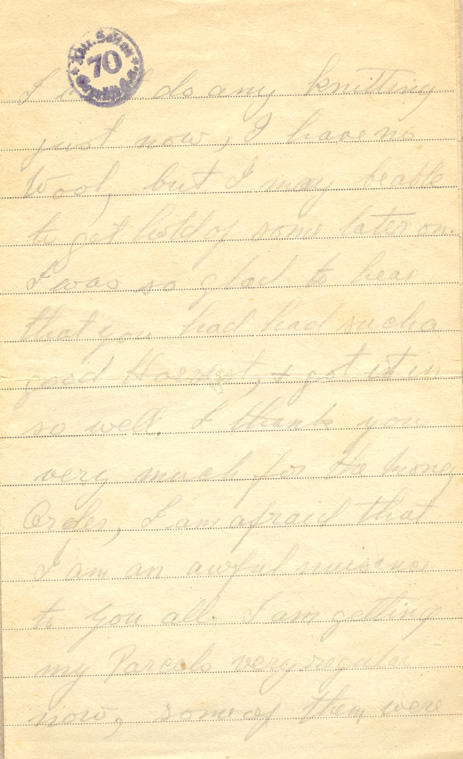 70
I do any knitting
just now, I have no
Wool, but I may be able
to get hold of some later on.
I was so glad to hear
that you had had such a
good Harvest, & got it in
so well. I thank you
very much for the Money
Order, I am afraid that
I am an awful nuisance
to you all. I am getting
my Parcels very regular
now, some of them were